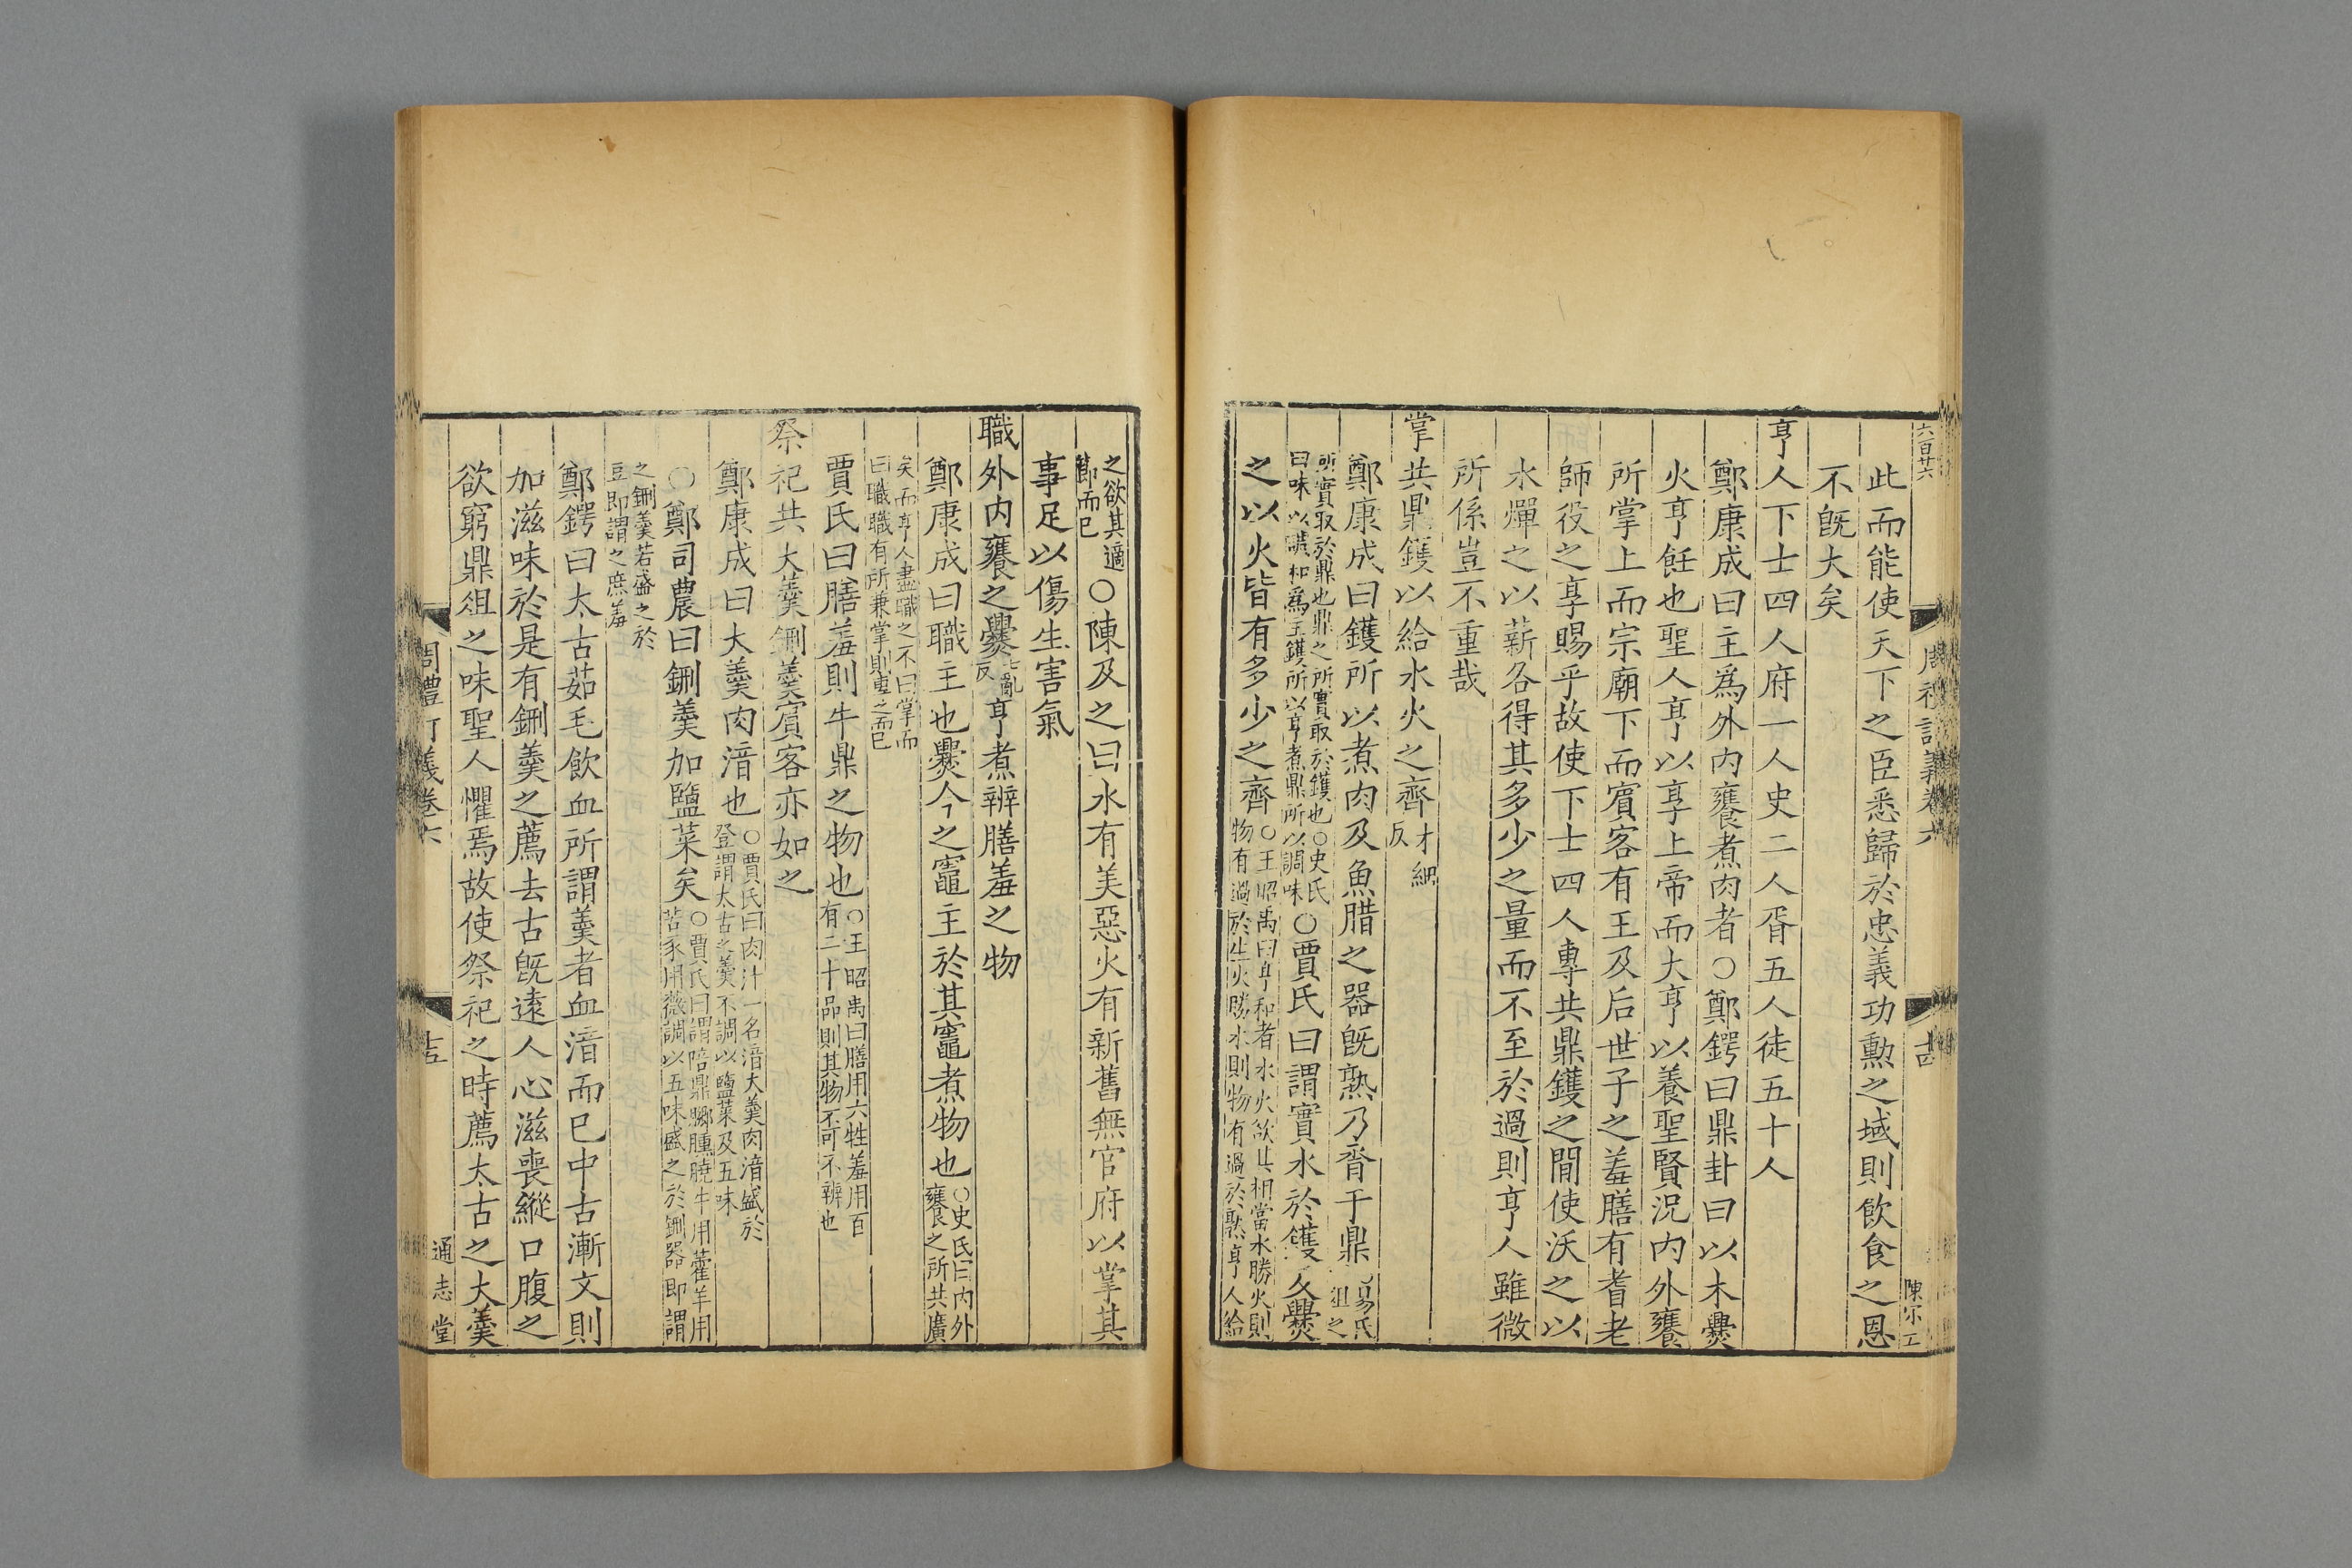 六百廿六
周禮訂義卷六
十四
陳尔工
此而能使天下之臣悉歸於忠義功勲之域則飲食之恩
不旣大矣
亨人下士四人府一人史二人胥五人徒五十人
鄭康成曰主爲外内饔煮肉者○鄭鍔曰鼎卦曰以木爨
火亨飪也聖人亨以享上帝而大亨以養聖賢況内外饔
所掌上而宗廟下而賓客有王及后世子之羞膳有耆老
師役之享賜乎故使下士四人專共鼎鑊之間使沃之以
水燀之以薪各得其多少之量而不至於過則亨人雖微
所係豈不重哉
掌共鼎鑊以給水火之齊才細反
鄭康成曰鑊所以煮肉及魚腊之器旣熟乃脀于鼎○易氏曰俎之
所實取於鼎也鼎之所實取於鑊也○史氏曰味以調和爲主鑊所以亨煮鼎所以調味○賈氏曰謂實水於鑊及爨
之以火皆有多少之齊○王昭禹曰亨和者水火欲其相當水勝火則物有過於生火勝水則物有過於熟亨人給
之欲其適節而已○陳及之曰水有美惡火有新舊無官府以掌其
事足以傷生害氣
職外内饔之爨七亂反亨煮辨膳羞之物
鄭康成曰職主也爨今之竈主於其竈煮物也○史氏曰内外饔之所共廣
矣而亨人盡職之不曰掌而曰職職有所兼掌則專之而已
賈氏曰膳羞則牛鼎之物也○王昭禹曰膳用六牲羞用百有二十品則其物不可不辨也
祭祀共大羹鉶羹賓客亦如之
鄭康成曰大羹肉湆也○賈氏曰肉汁一名湆大羹肉湆盛於登謂太古之羹不調以鹽菜及五味
○鄭司農曰鉶羹加鹽菜矣○賈氏曰謂陪鼎膷臐膮牛用藿羊用苦豕用薇調以五味盛之於鉶器即謂
之鉶羹若盛之於豆即謂之庶羞
鄭鍔曰太古茹毛飲血所謂羹者血湆而已中古漸文則
加滋味於是有鉶羹之薦去古旣遠人心滋喪縱口腹之
欲窮鼎俎之味聖人懼焉故使祭祀之時薦太古之大羹
周禮訂義卷六
十五
通志堂